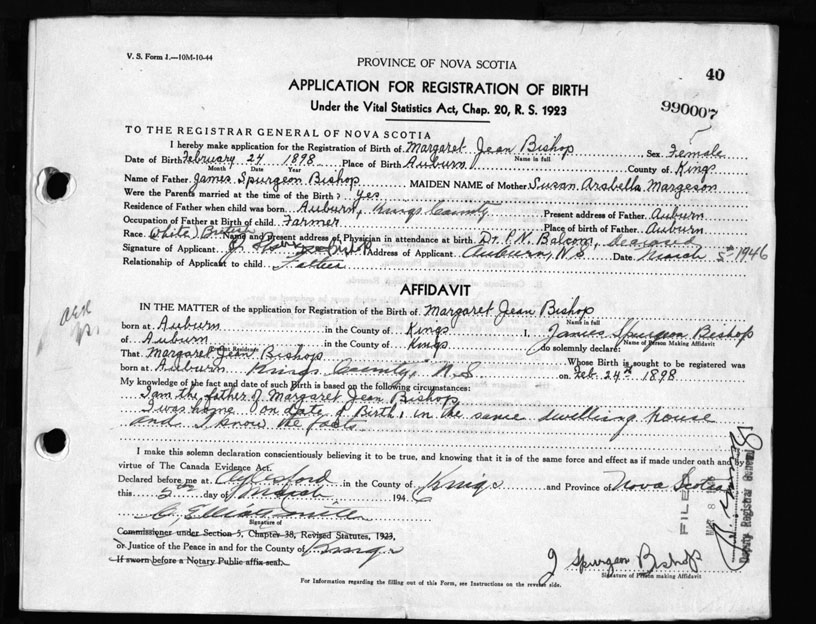 V. S. Form 1.—10M-10-44
PROVINCE OF NOVA SCOTIA
40
APPLICATION FOR REGISTRATION OF BIRTH
990007
Under the Vital Statistics Act, Chap. 20, R. S. 1923
TO THE REGISTRAR GENERAL OF NOVA SCOTIA
I hereby make application for the Registration of Birth of Margaret Jean Bishop Sex Female
Name in full
Date of Birth February 24 1898 Place of Birth Auburn County of Kings
Month Day Year
Name of Father James Spurgeon Bishop MAIDEN NAME of Mother Susan Arabella Margeson
Were the Parents married at the time of the Birth? yes
Residence of Father when child was born Auburn, Kings County Present address of Father Auburn
Occupation of Father at Birth of child Farmer Place of birth of Father Auburn
Race (White) British Name and Present address of Physician in attendance at birth Dr. P. N. Balcom, deceased
Signature of Applicant J Spurgeon Bishop Address of Applicant Auburn, N.S. Date March 5th 1946
Relationship of Applicant to child Father
AFFIDAVIT
IN THE MATTER of the application for Registration of the Birth of Margaret Jean Bishop
Name in full
born at Auburn in the County of Kings I, James Spurgeon Bishop
Name of Person Making Affidavit
of Auburn in the County of Kings do solemnly declare:
Residence
That Margaret Jean Bishop Whose Birth is sought to be registered was
born at Auburn Kings County, N.S. on Feb 24th 1898
My knowledge of the fact and date of such Birth is based on the following circumstances:
I am the father of Margaret Jean Bishop
I was home on date of Birth, in the same dwelling house
and I know the facts
I make this solemn declaration conscientiously believing it to be true, and knowing that it is of the same force and effect as if made under oath and by
virtue of The Canada Evidence Act.
Declared before me at Aylesford in the County of Kings and Province of Nova Scotia
this 5th day of March 1946
Signature of
Commissioner under Section 5, Chapter 38, Revised Statutes, 1923,
or Justice of the Peace in and for the County of Kings
If sworn before a Notary Public affix seal.
J Spurgeon Bishop
Signature of Person making Affidavit
For Information regarding the filling out of this Form, see Instructions on the reverse side.
FILED
Deputy Registrar General